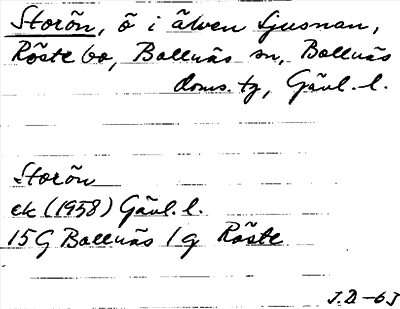 Storön, ö i älven Ljusnan,
Röste by, Bollnäs sn, Bollnäs
doms. tg, Gävl. l.
Storön
ek (1958) Gävl. l.
15 G Bollnäs 1 g Röste
J.D-63